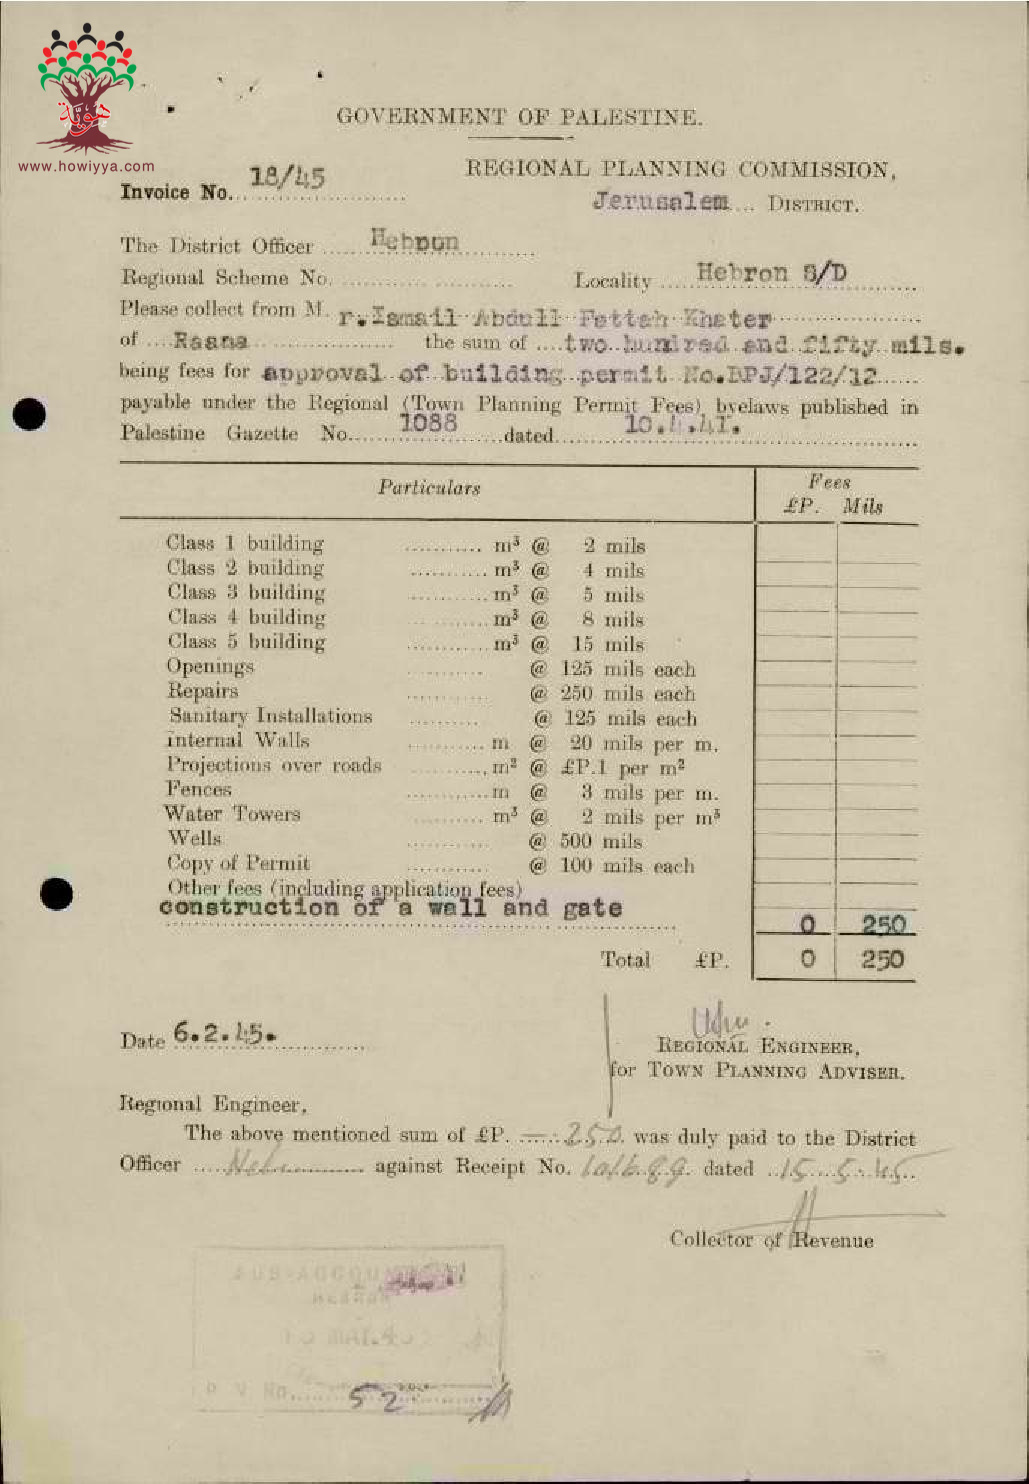 هوية
www.howiyya.com
GOVERNMENT OF PALESTINE.
REGIONAL PLANNING COMMISSION,
Invoice No. 18/45
Jerusalem DISTRICT.
The District Officer Hebron
Regional Scheme No. Locality Hebron S/D
Please collect from M. r. Ismail Abdull Fettah Khater
of Raana the sum of two hundred and fifty mils.
being fees for approval of building permit No.DPJ/122/12
payable under the Regional (Town Planning Permit Fees) byelaws published in
Palestine Gazette No. 1088 dated 10.4.41.
Particulars Fees
£P. Mils
Class 1 building m³ @ 2 mils
Class 2 building m³ @ 4 mils
Class 3 building m³ @ 5 mils
Class 4 building m³ @ 8 mils
Class 5 building m³ @ 15 mils
Openings @ 125 mils each
Repairs @ 250 mils each
Sanitary Installations @ 125 mils each
Internal Walls m @ 20 mils per m.
Projections over roads m² @ £P.1 per m²
Fences m @ 3 mils per m.
Water Towers m³ @ 2 mils per m³
Wells @ 500 mils
Copy of Permit @ 100 mils each
Other fees (including application fees)
construction of a wall and gate 0 250
Total £P. 0 250
Date 6.2.45.
REGIONAL ENGINEER,
for TOWN PLANNING ADVISER.
Regional Engineer,
The above mentioned sum of £P. — 250 was duly paid to the District
Officer against Receipt No. 101689 dated 15.5.45
Collector of Revenue
SUB-ACCOUN
HEBRON
P V No. 52